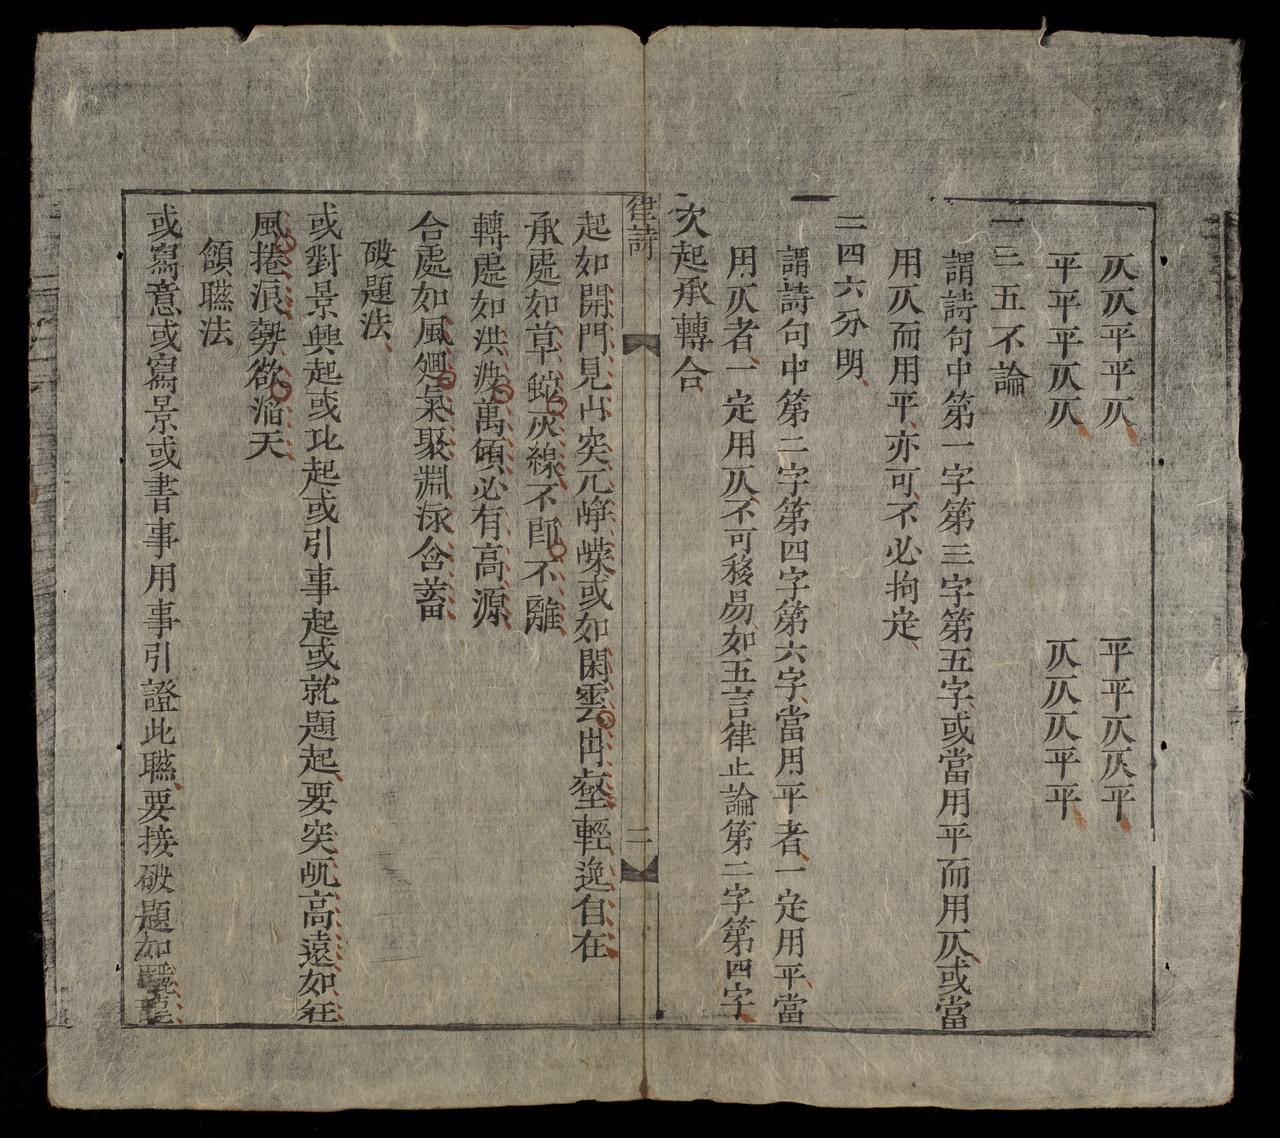 仄仄平平仄　平平仄仄平
平平平仄仄　仄仄仄平平
一三五不論
謂詩句中第一字第三字第五字或當用平而用仄或當
用仄而用平亦可不必拘定
二四六分明
謂詩句中第二字第四字第六字當用平者一定用平當
用仄者一定用仄不可移易如五言律止論第二字第四字
次起承轉合
律詩　二
起如開門見山突兀崢嶸或如閑雲出壑輕逸自在
承處如草蛇灰線不即不離
轉處如洪波萬頃必有高源
合處如風廻氣聚淵泳含蓄
破題法
或對景興起或比起或引事起或就題起要突兀高遠如狂
風捲浪勢欲滔天
頷聮法
或寫意或寫景或書事用事引證此聮要接破題如驪龍